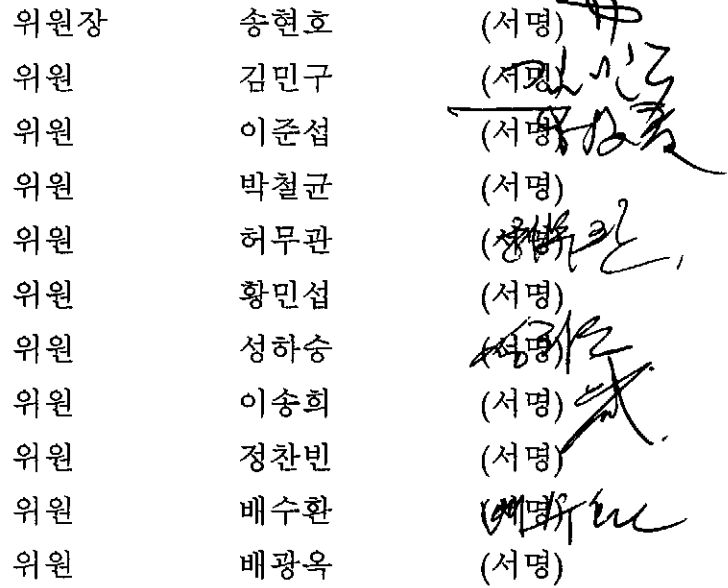 위원장 송현호 (서명)
위원 김민구 (서명)
위원 이준섭 (서명)
위원 박철균 (서명)
위원 허무관 (서명)
위원 황민섭 (서명)
위원 성하승 (서명)
위원 이송희 (서명)
위원 정찬빈 (서명)
위원 배수환 (서명)
위원 배광옥 (서명)